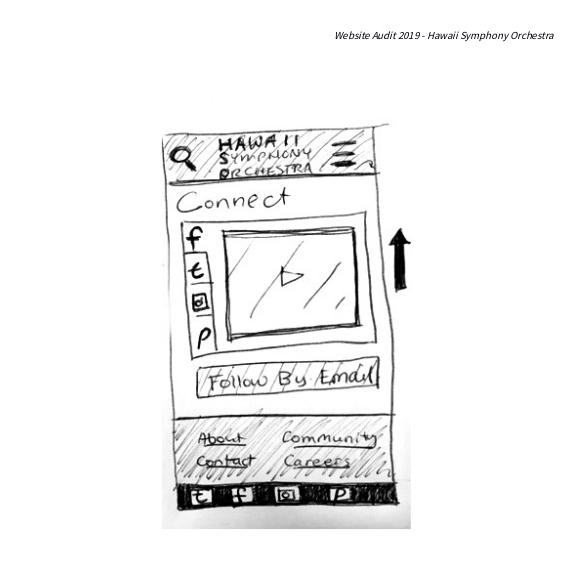 Website Audit 2019 - Hawaii Symphony Orchestra
HAWAII
SYMPHONY
ORCHESTRA
Connect
f
t
p
Follow By Email
About Community
Contact Careers
t f p